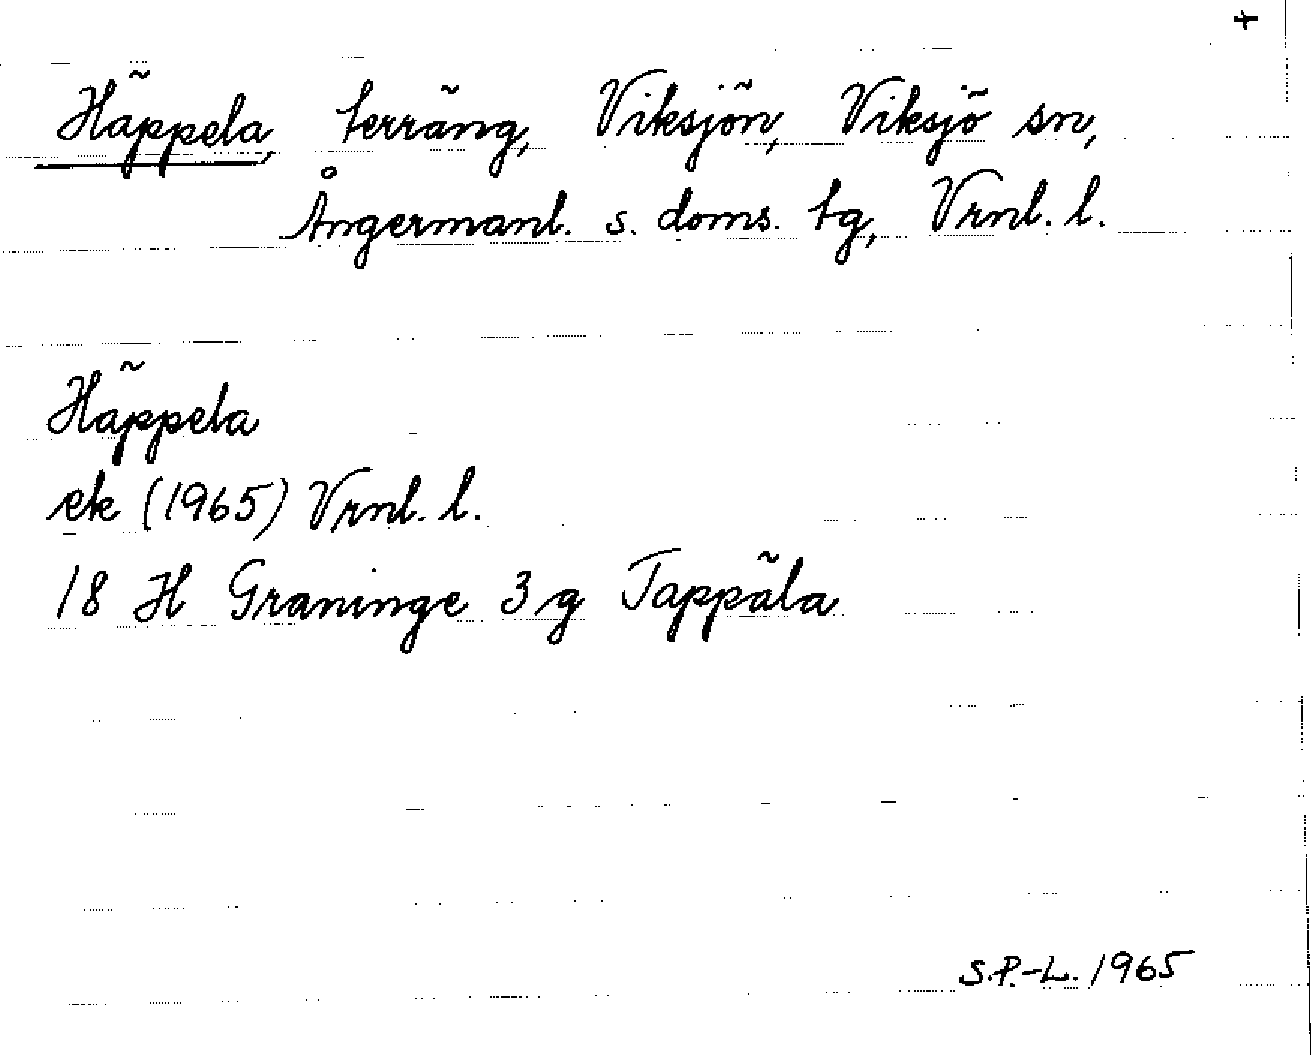 +
Häppela, terräng, Viksjön, Viksjö sn,
Ångermanl. s. doms. tg, Vrnl. l.
Häppela
ek (1965) Vrnl. l.
18 H Graninge 3 g Tappäla
S.P.-L. 1965